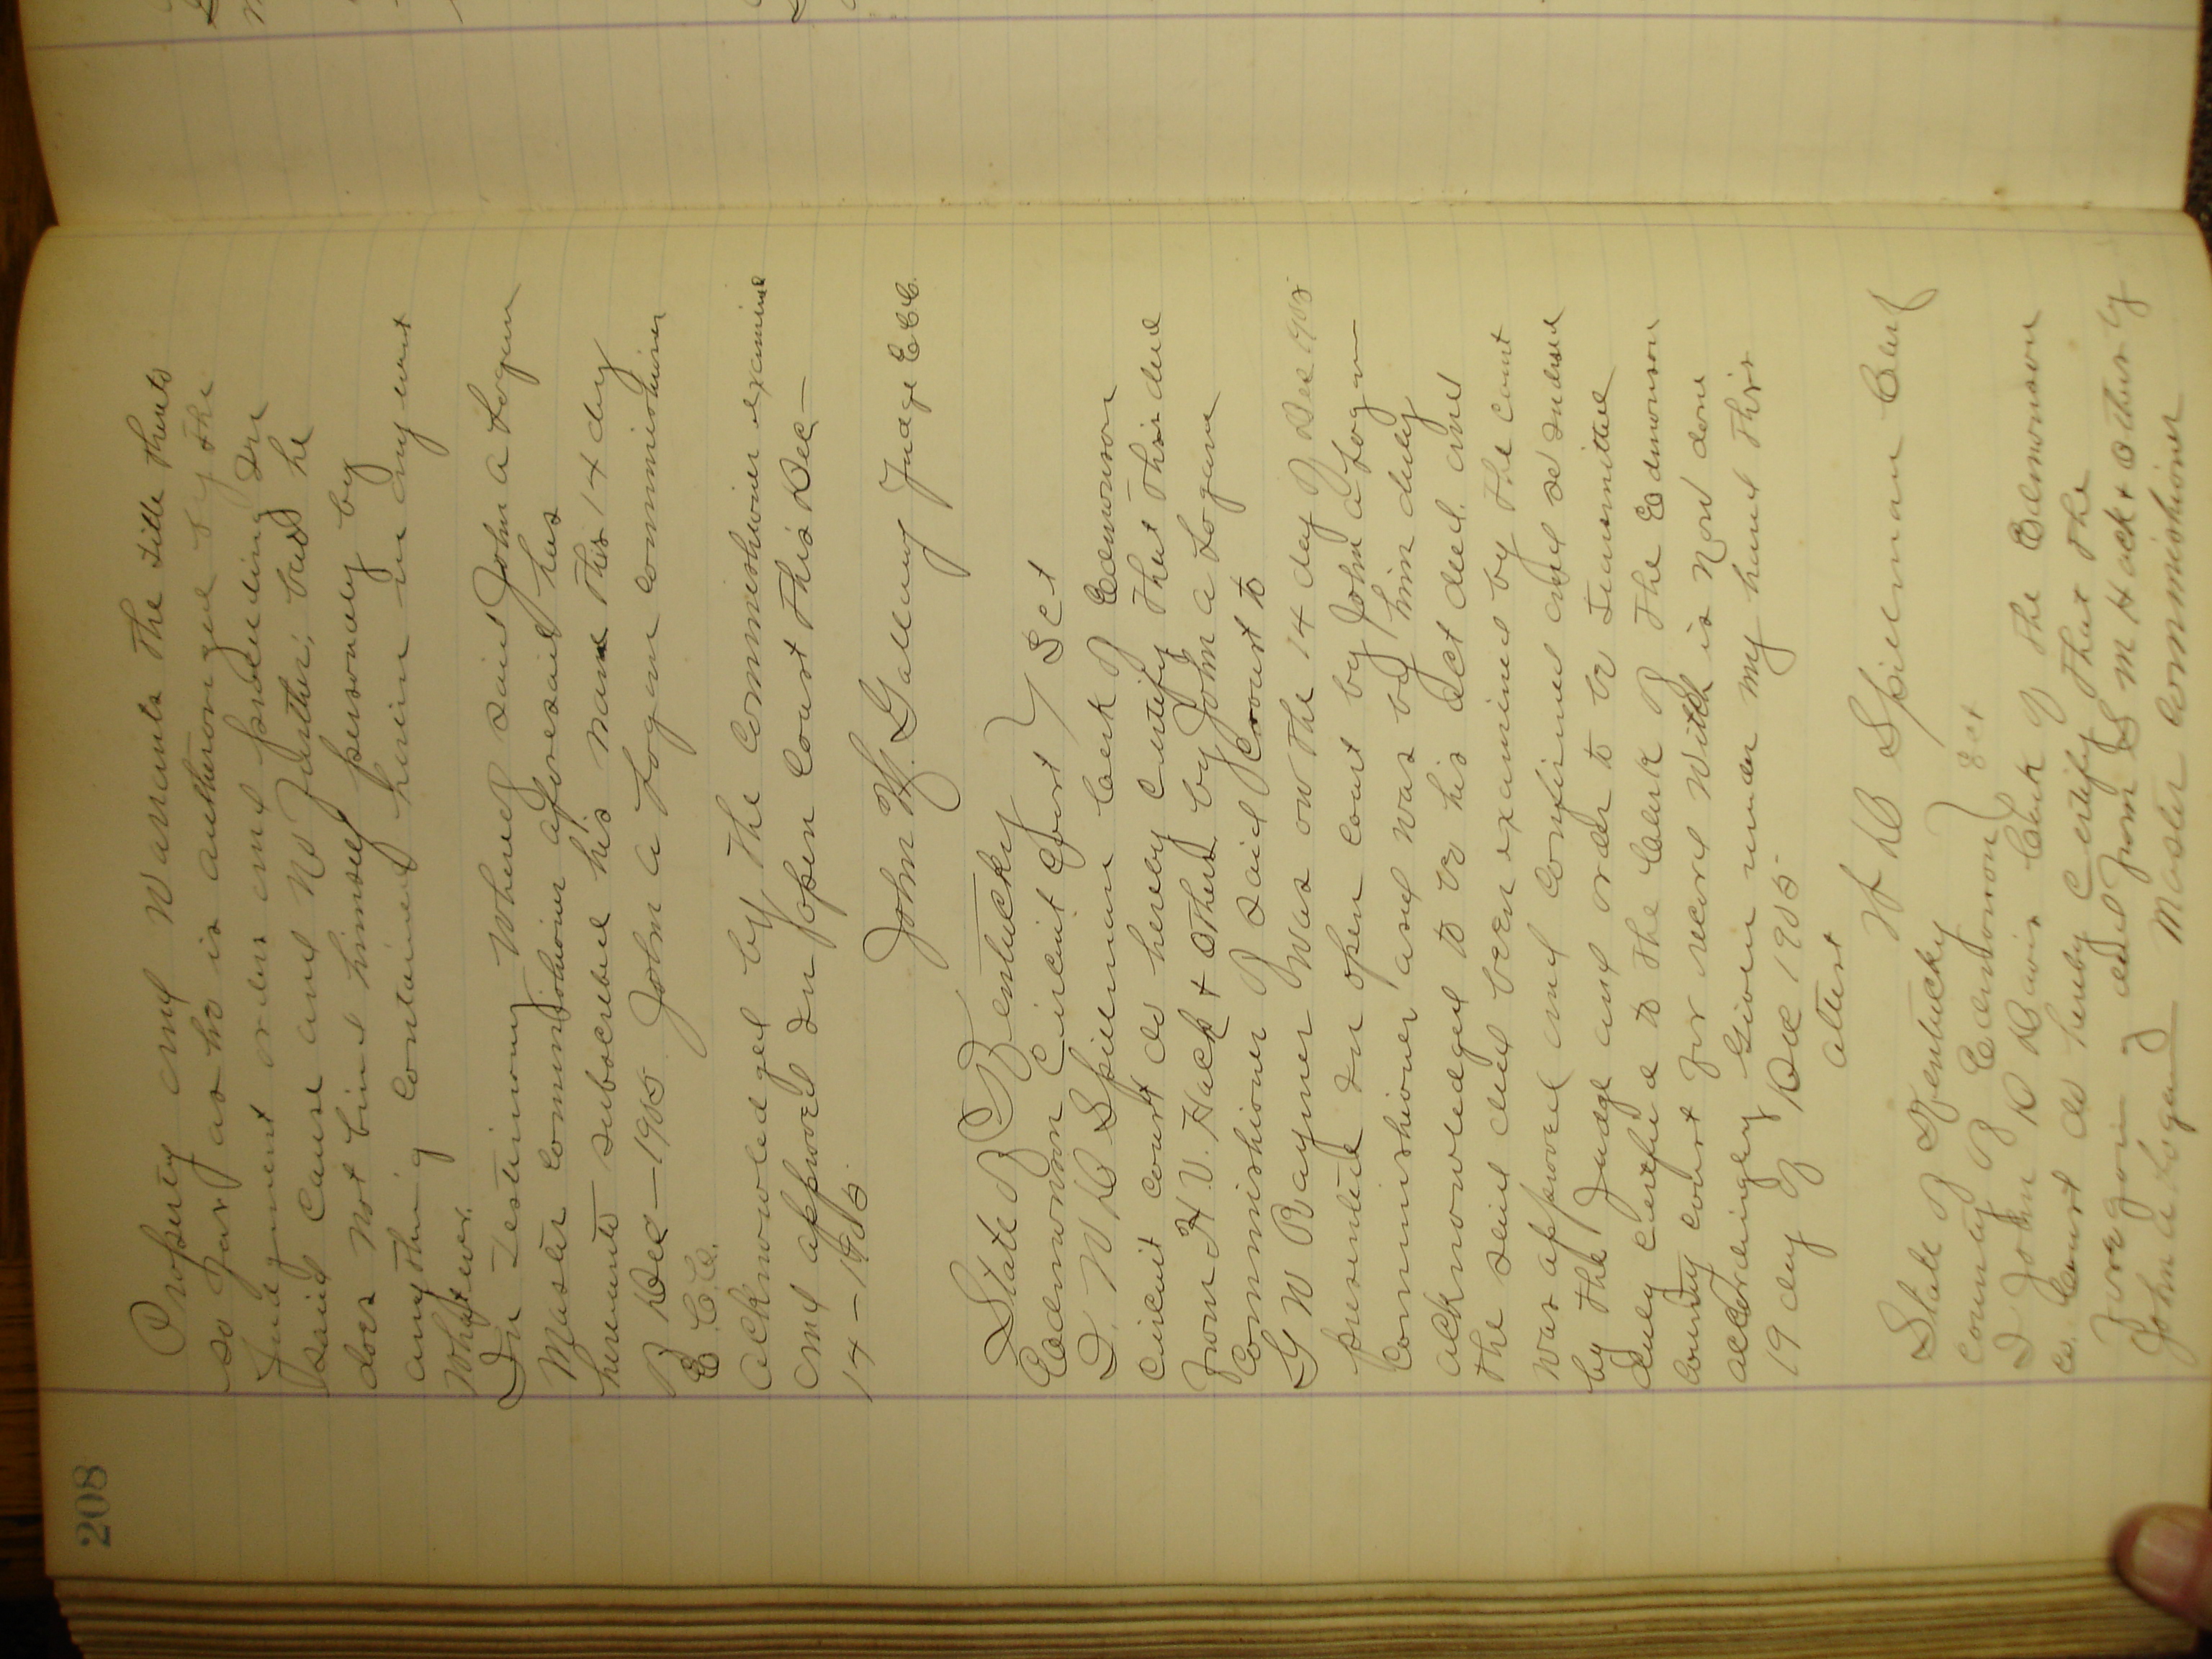 208
Property and Warrants The title thereto
so far as he is authorized by the
Judgment orders and proceeding In
said Cause and No further; but he
does Not bind himself personally by
anything contained herein in any event
Whatever.
In Testimony Whereof said John A Logan
Master Commissioner aforesaid has
hereunto subscribed his name This 14 day
of Dec—1905 John A Logan Commissioner
E.C.C.
Acknowledged by The Commissioner examined
and approved In open Court This Dec—
14—1905
John M. Galloway Judge E C C.
State of Kentucky
Edmonson Circuit Court } Sct
I. W D Spillman Clerk of Edmonson
Circuit Court do hereby Certify That This deed
from H.V. Hack + Others by John A Logan
Commissioner of said Court to
G W Raymer Was on The 14 day of Dec 1905
presented In open Court by John A Logan
Commissioner and was by him duly
acknowledged to be his act deed and
The said deed been examined by The Court
Was approved and Confirmed and so Indorsed
by The Judge and order to be transmitted
duly Certified to The Clerk of The Edmonson
County Court for record Which is Now done
accordingly Given under my hand This
19 day of Dec 1905
attest
W D Spillman Clerk
State of Kentucky
County of Edmonson } Sct
I John R Davis Clerk of The Edmonson
Co. Court do hereby Certify That The
foregoing deed from S M Hack + others by
John A Logan Master Commissioner